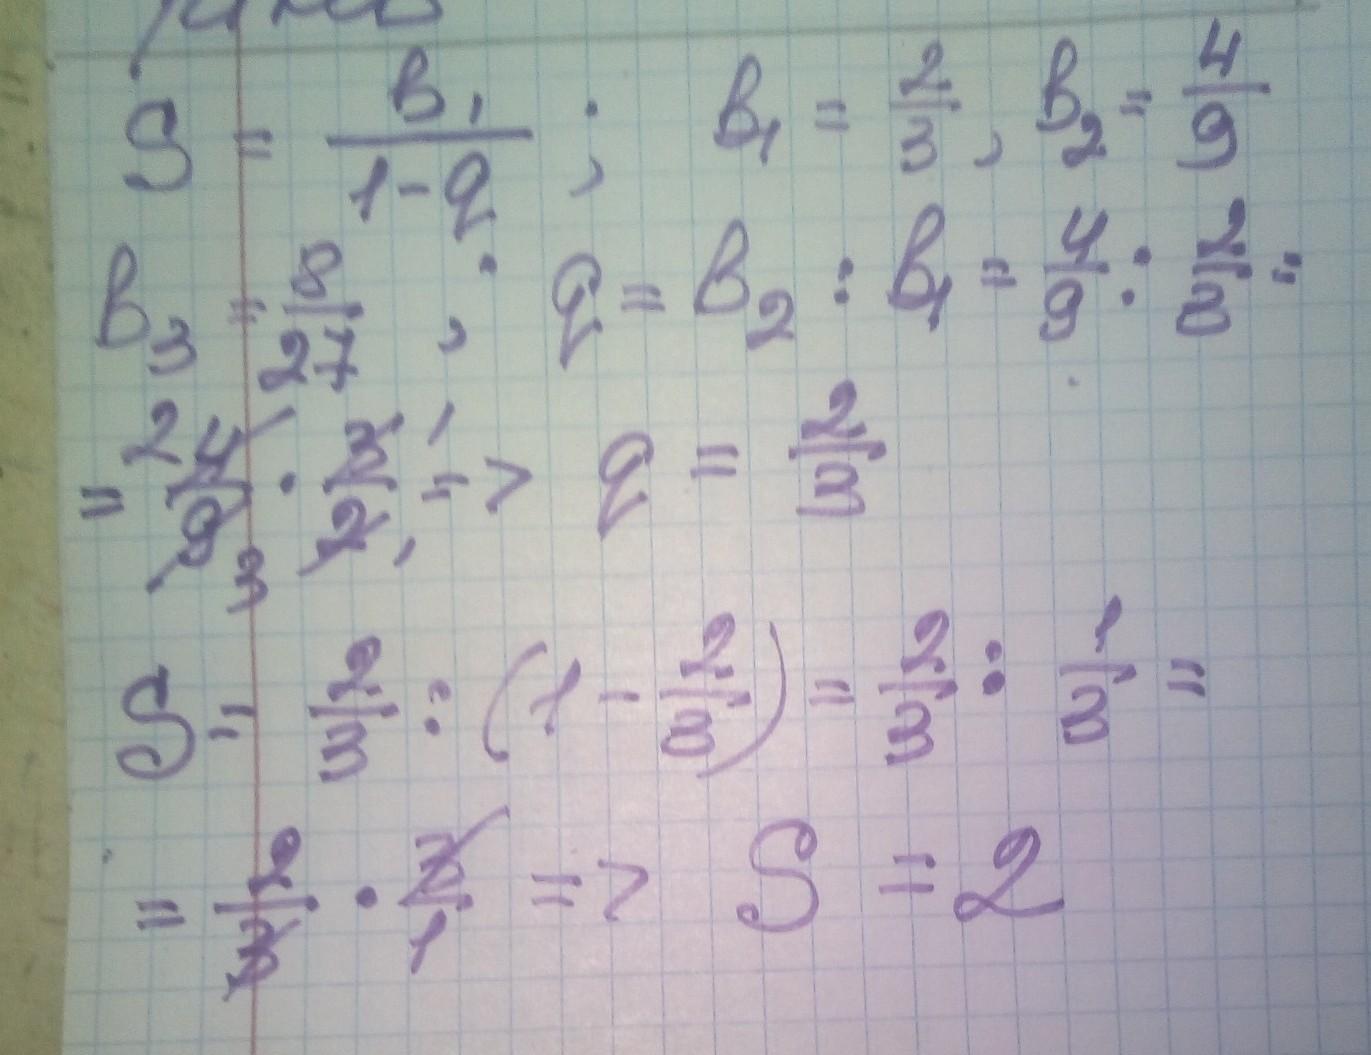 S = b₁/(1-q) ; b₁ = 2/3, b₂ = 4/9
b₃ = 8/27 ; q = b₂ : b₁ = 4/9 : 2/3 =
= ²4/9₃ · 3/2 ¹₁ => q = 2/3
S = 2/3 : (1 - 2/3) = 2/3 : 1/3 =
= 2/3 · 3/1 => S = 2